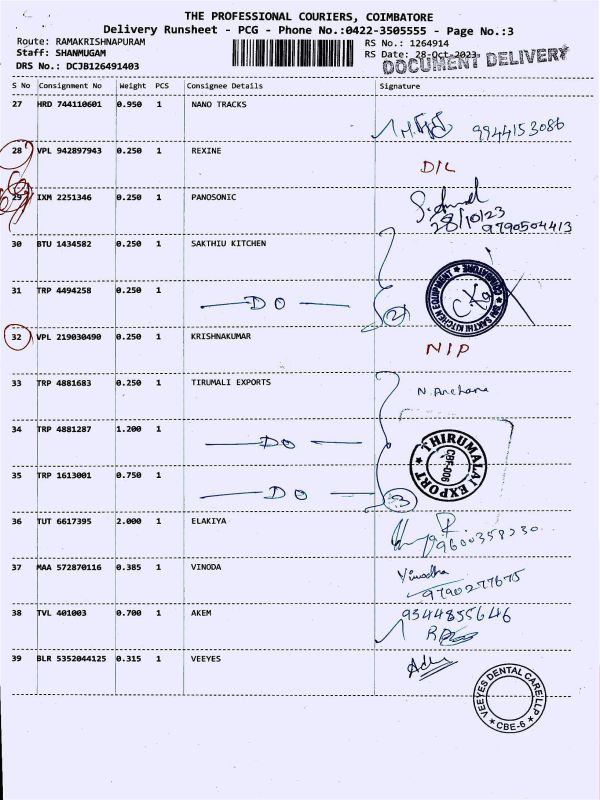 THE PROFESSIONAL COURIERS, COIMBATORE
Delivery Runsheet - PCG - Phone No.:0422-3505555 - Page No.:3
Route: RAMAKRISHNAPURAM RS No.: 1264914
Staff: SHANMUGAM RS Date: 28-Oct-2023
DOCUMENT DELIVERY
DRS No.: DCJB126491403
S No Consignment No Weight PCS Consignee Details Signature
27 HRD 744110601 0.950 1 NANO TRACKS
9944153086
28 VPL 942897943 0.250 1 REXINE
D/L
29 IXM 2251346 0.250 1 PANOSONIC
28/10/23
9790504413
30 BTU 1434582 0.250 1 SAKTHIU KITCHEN
31 TRP 4494258 0.250 1
DO 2
SRI SAKTHI KITCHEN EQUIPMENT ★ COIMBATORE ★
32 VPL 219030490 0.250 1 KRISHNAKUMAR
N/P
33 TRP 4881683 0.250 1 TIRUMALI EXPORTS
N. Archana
34 TRP 4881287 1.200 1
DO
THIRUMALAI EXPORT ★
CBE-006
35 TRP 1613001 0.750 1
DO 3
36 TUT 6617395 2.000 1 ELAKIYA
9600358230
37 MAA 572870116 0.385 1 VINODA
Vinodha
9790277675
38 TVL 401003 0.700 1 AKEM
9344855646
39 BLR 5352044125 0.315 1 VEEYES
VEEYES DENTAL CARE LLP
★ CBE-6 ★